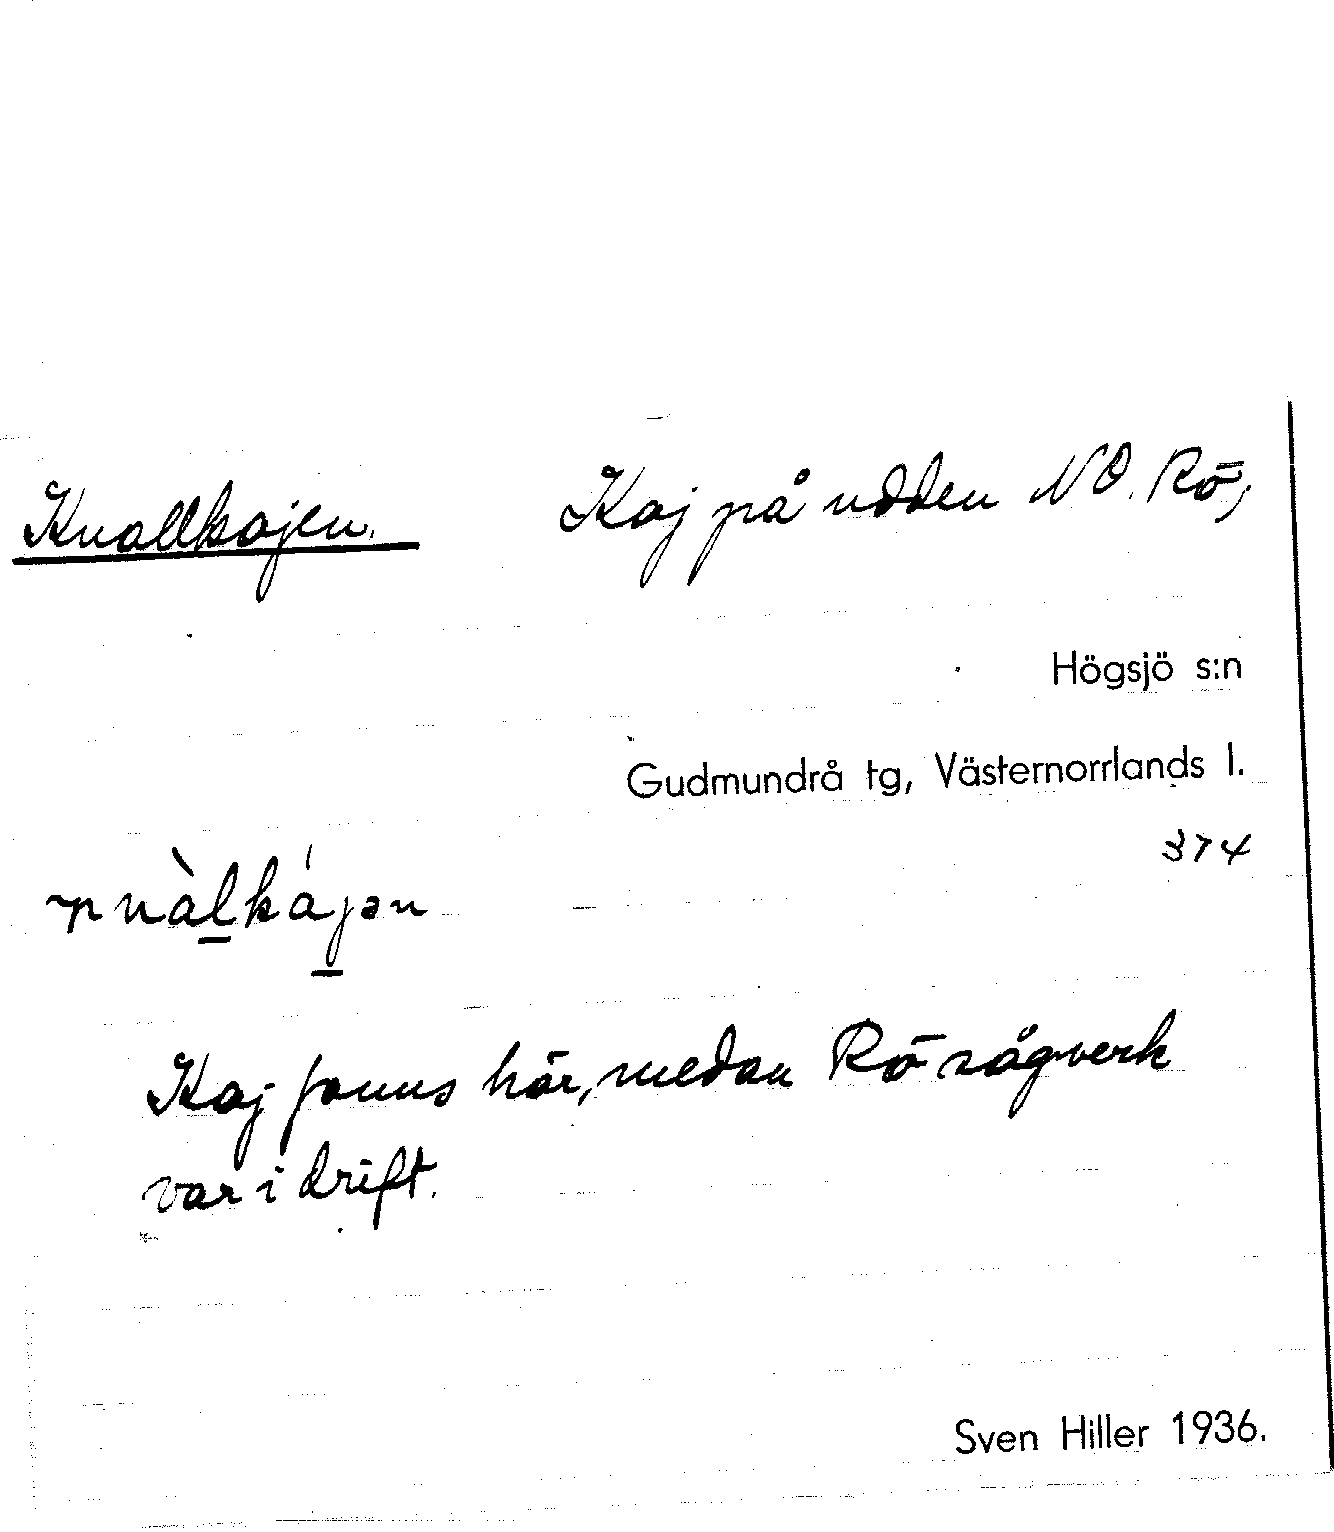 Knallkajen. Kaj på udden NO. Rö,
Högsjö s:n
Gudmundrå tg, Västernorrlands l.
374
Kaj fanns här, medan Rö sågverk
var i drift.
Sven Hiller 1936.